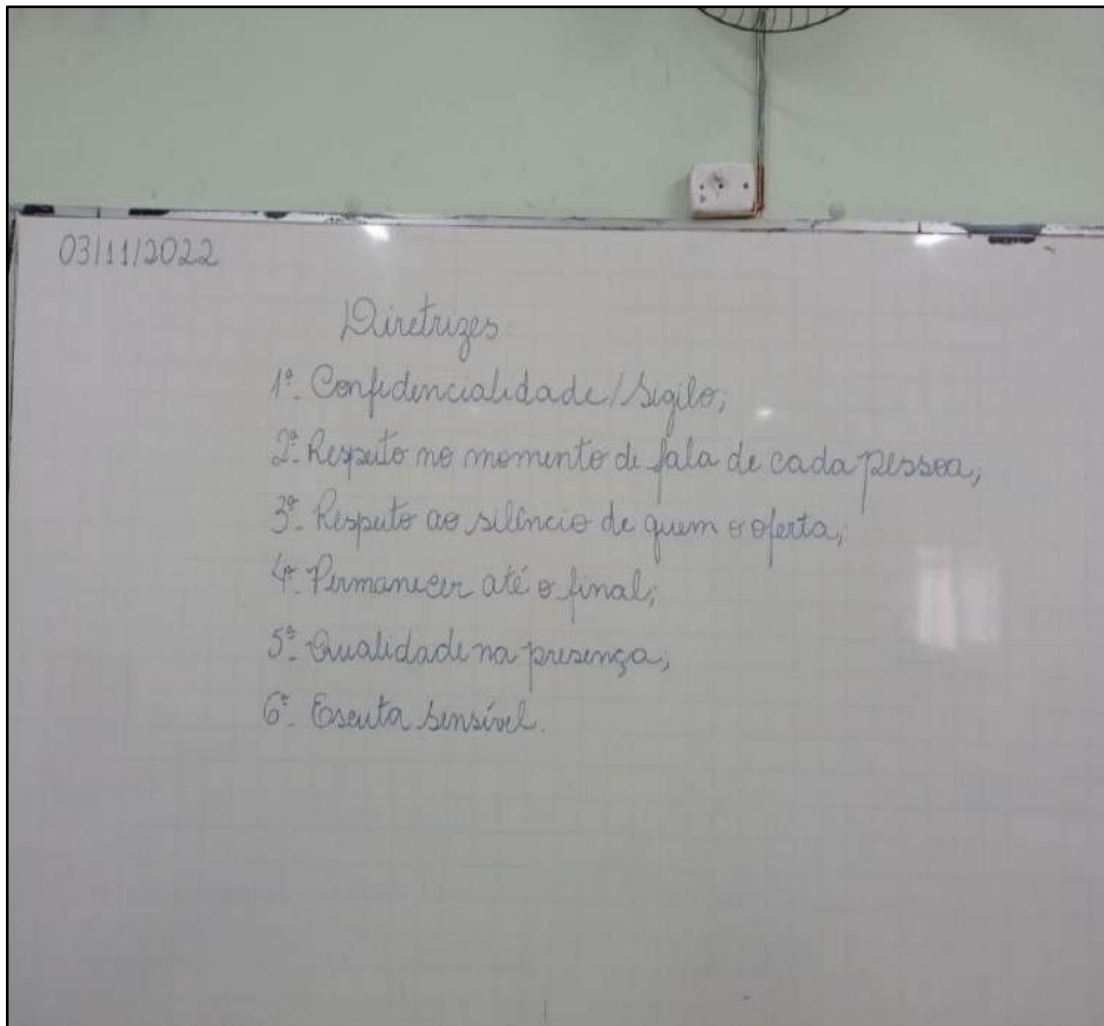 03/11/2022
Diretrizes:
1ª. Confidencialidade/Sigilo;
2ª. Respeito no momento de fala de cada pessoa;
3ª. Respeito ao silêncio de quem o oferta;
4ª. Permanecer até o final;
5ª. Qualidade na presença;
6ª. Escuta sensível.